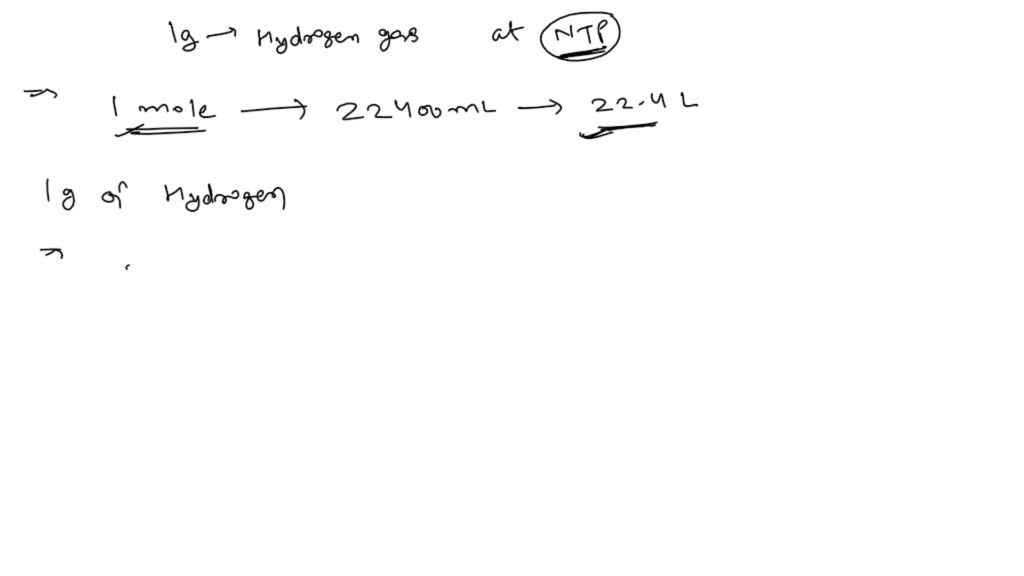 1g → Hydrogen gas at NTP
⇒ 1 mole → 22400mL → 22.4 L
1g of Hydrogen
⇒